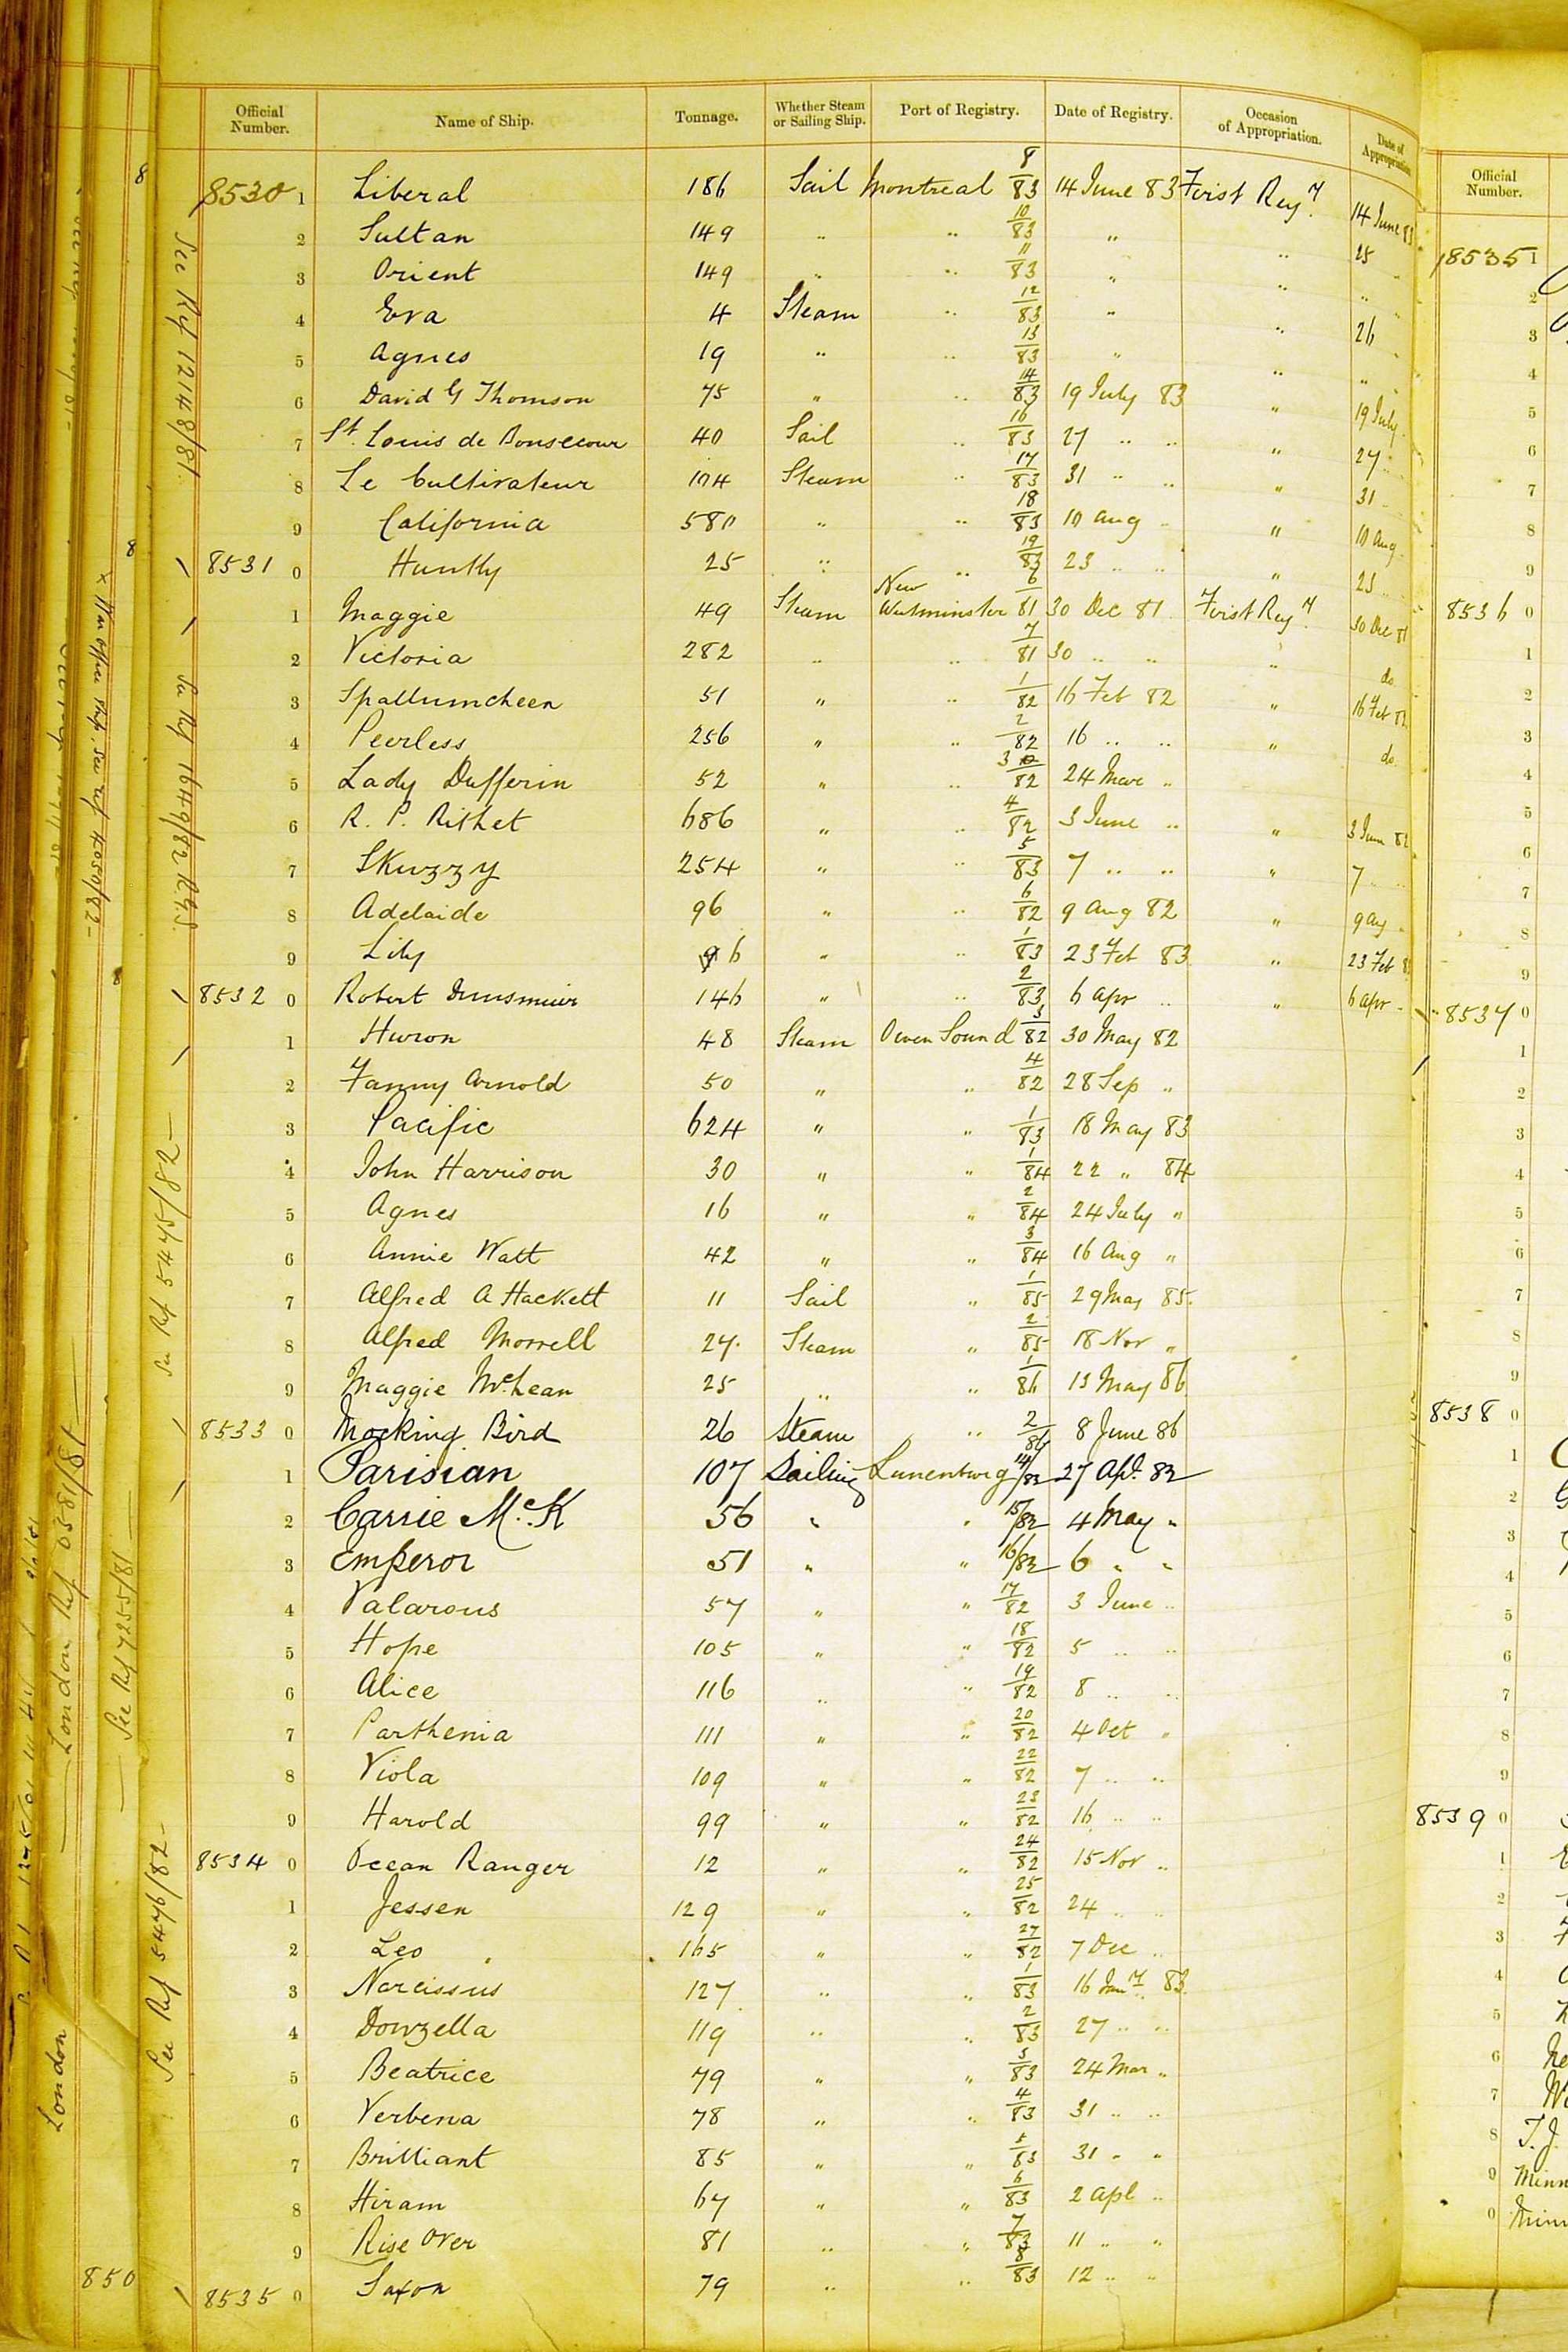 Official Number. Name of Ship. Tonnage. Whether Steam or Sailing Ship. Port of Registry. Date of Registry. Occasion of Appropriation. Date of Appropriation.
8530 1 Liberal 186 Sail Montreal 8/83 14 June 83 First Regy. 14 June 83
2 Sultan 149 " " 10/83 " " 25 "
3 Orient 149 " " 11/83 " " " "
4 Eva 4 Steam " 12/83 " " 26 "
5 Agnes 19 " " 13/83 " " " "
6 David G Thomson 75 " " 14/83 19 July 83 " 19 July
7 St. Louis de Bonsecour 40 Sail " 16/83 27 " " " 27 "
8 Le Cultivateur 104 Steam " 17/83 31 " " " 31 "
9 California 580 " " 18/83 10 Aug " " 10 Aug
8531 0 Huntly 25 " " 19/83 23 " " " 23 "
1 Maggie 49 Steam New Westminster 6/81 30 Dec 81 First Regy. 30 Dec 81
2 Victoria 282 " " 7/81 30 " " " do
3 Spallumcheen 51 " " 1/82 16 Feb 82 " 16 Feb 82
4 Peerless 256 " " 2/82 16 " " " do
5 Lady Dufferin 52 " " 3/82 24 Mar "
6 R. P. Rithet 686 " " 4/82 3 June " " 3 June 82
7 Skuzzy 254 " " 5/83 7 " " " 7 "
8 Adelaide 96 " " 6/82 9 Aug 82 " 9 Aug
9 Lily 96 " " 1/83 23 Feb 83 " 23 Feb 8
8532 0 Robert Dunsmuir 146 " " 2/83 6 Apr " " 6 Apr
1 Huron 48 Steam Owen Sound 3/82 30 May 82
2 Fanny Arnold 50 " " 4/82 28 Sep "
3 Pacific 624 " " 1/83 18 May 83
4 John Harrison 30 " " 1/84 22 " 84
5 Agnes 16 " " 2/84 24 July "
6 Annie Watt 42 " " 3/84 16 Aug "
7 Alfred A Hackett 11 Sail " 1/85 29 May 85.
8 Alfred Morrell 24. Steam " 2/85 18 Nov "
9 Maggie McLean 25 " " 1/86 13 May 86
8533 0 Mocking Bird 26 Steam " 2/86 8 June 86
1 Parisian 107 Sailing Lunenburg 14/82 27 Apl. 82
2 Carrie Mc.K 56 " " 15/82 4 May "
3 Emperor 51 " " 16/82 6 " "
4 Valarous 57 " " 17/82 3 June "
5 Hope 105 " " 18/82 5 " "
6 Alice 116 " " 19/82 8 " "
7 Parthenia 111 " " 20/82 4 Oct "
8 Viola 109 " " 22/82 7 " "
9 Harold 99 " " 23/82 16 " "
8534 0 Ocean Ranger 12 " " 24/82 15 Nov "
1 Jessen 129 " " 25/82 24 " "
2 Leo 165 " " 27/82 7 Dec "
3 Narcissus 127 " " 1/83 16 Jany. 83
4 Dowzella 119 " " 2/83 27 " "
5 Beatrice 79 " " 3/83 24 Mar "
6 Verbena 78 " " 4/83 31 " "
7 Brilliant 85 " " 5/83 31 " "
8 Hiram 67 " " 6/83 2 Apl "
9 Rise Over 81 " " 7/83 11 " "
8535 0 Saxon 79 " " 8/83 12 " "
See Ref 12148/81
See Ref 1649/82 R.G.S.
See Ref 5475/82
See Ref 5476/82
See Ref 7255/81
London Ref 0381/81
London
850
8
8
8
Official Number.
18535 1
2
3
4
5
6
7
8
9
8536 0
1
2
3
4
5
6
7
8
9
8537 0
1
2
3
4
5
6
7
8
9
8538 0
1
2
3
4
5
6
7
8
9
8539 0
1
2
3
4
5
6
7
8 T. J.
9 Minn
0